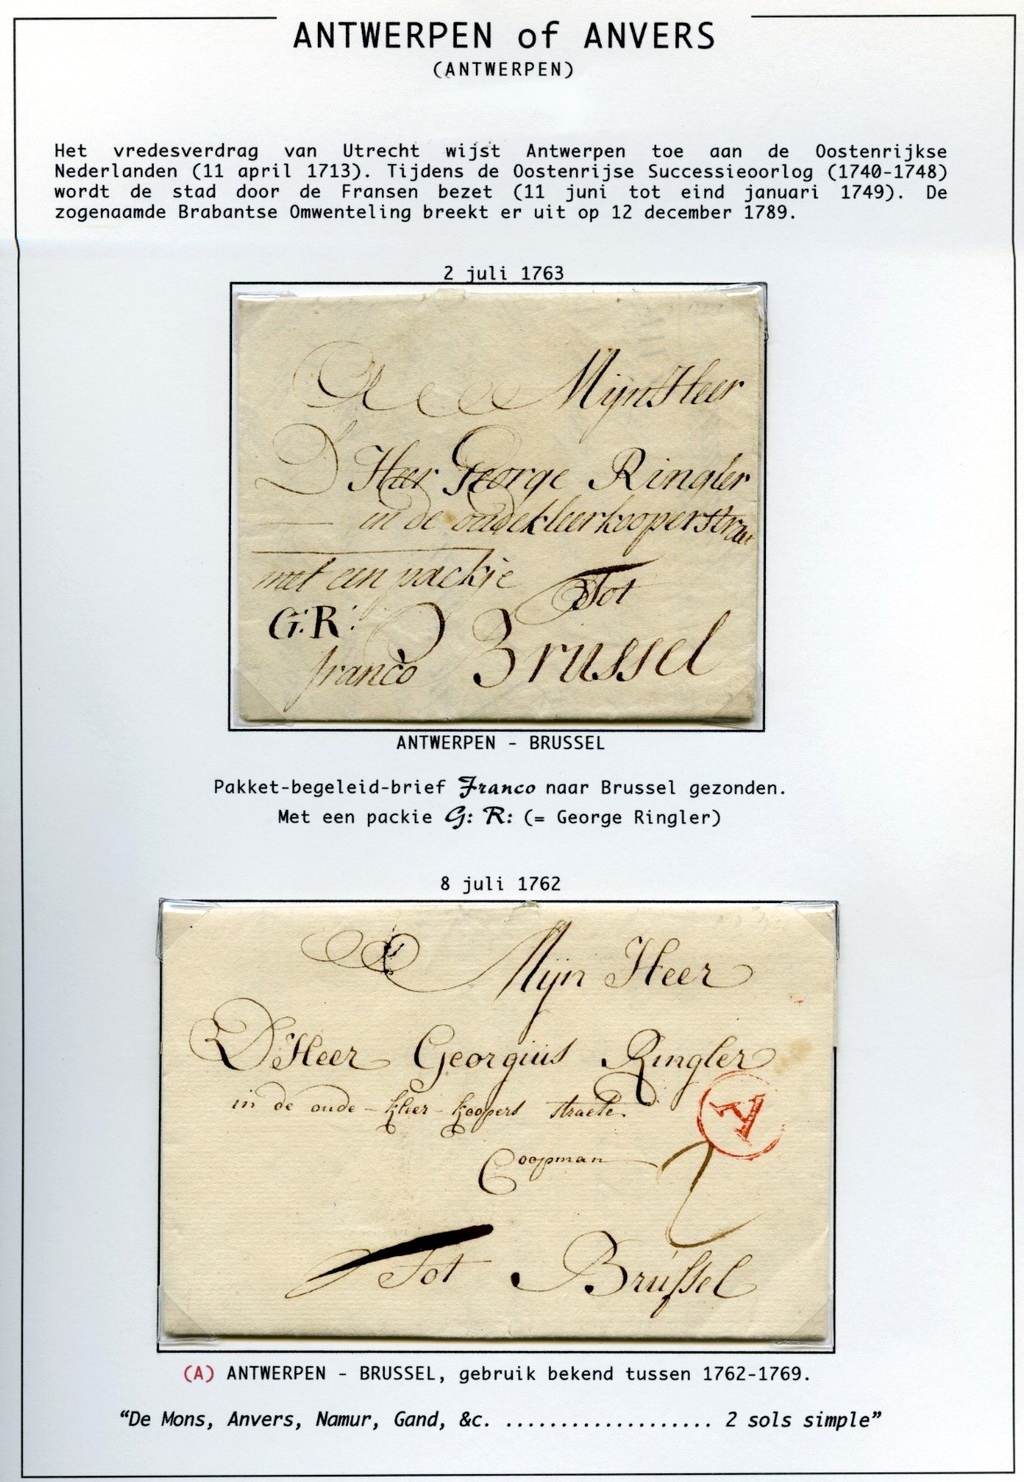 ANTWERPEN of ANVERS
(ANTWERPEN)
Het vredesverdrag van Utrecht wijst Antwerpen toe aan de Oostenrijkse
Nederlanden (11 april 1713). Tijdens de Oostenrijse Successieoorlog (1740-1748)
wordt de stad door de Fransen bezet (11 juni tot eind januari 1749). De
zogenaamde Brabantse Omwenteling breekt er uit op 12 december 1789.
2 juli 1763
A Mijn Heer
D Heer George Ringler
in de oudekleerkooperstraet
met een packie Tot
G:R:
franco Brussel
ANTWERPEN - BRUSSEL
Pakket-begeleid-brief Franco naar Brussel gezonden.
Met een packie G: R: (= George Ringler)
8 juli 1762
A Mijn Heer
D'Heer Georgius Ringler
in de oude-kleer-koopers straete.
A
Coopman 2
Tot Brussel
(A) ANTWERPEN - BRUSSEL, gebruik bekend tussen 1762-1769.
“De Mons, Anvers, Namur, Gand, &c. ................... 2 sols simple”